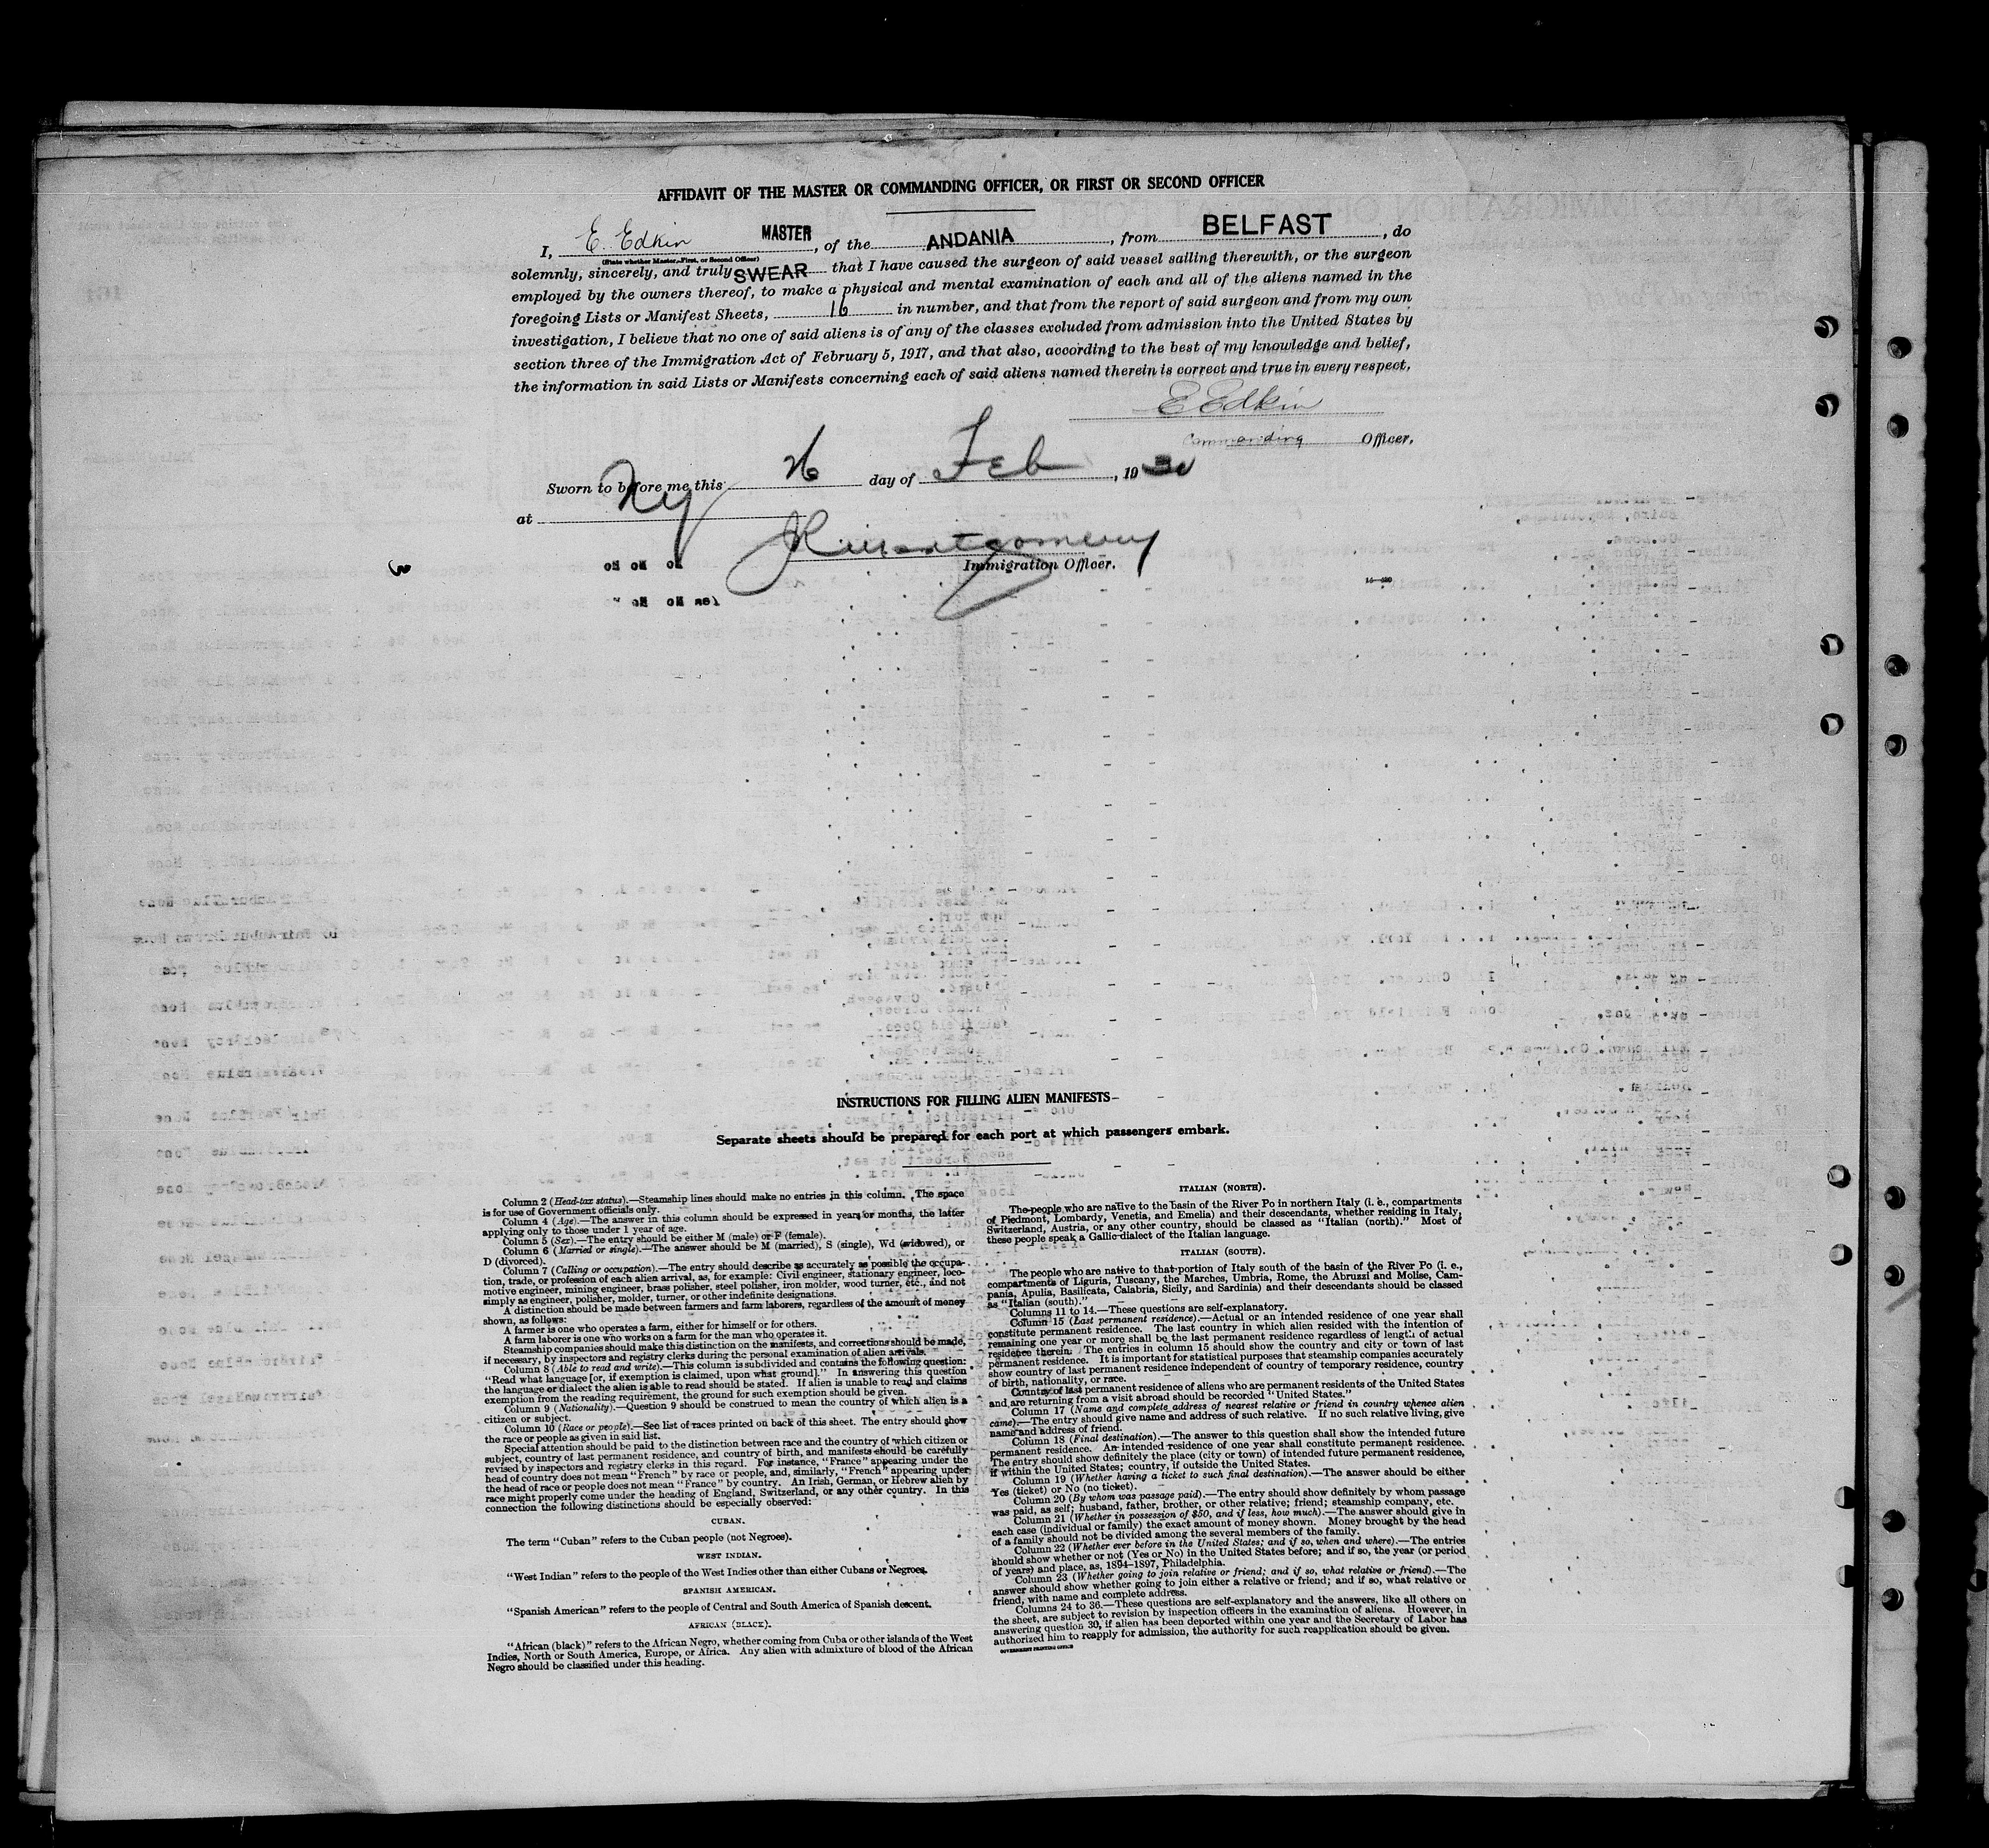 AFFIDAVIT OF THE MASTER OR COMMANDING OFFICER, OR FIRST OR SECOND OFFICER
I, E. Edkin MASTER, of the ANDANIA, from BELFAST, do
(State whether Master, First, or Second Officer)
solemnly, sincerely, and truly SWEAR that I have caused the surgeon of said vessel sailing therewith, or the surgeon
employed by the owners thereof, to make a physical and mental examination of each and all of the aliens named in the
foregoing Lists or Manifest Sheets, 16 in number, and that from the report of said surgeon and from my own
investigation, I believe that no one of said aliens is of any of the classes excluded from admission into the United States by
section three of the Immigration Act of February 5, 1917, and that also, according to the best of my knowledge and belief,
the information in said Lists or Manifests concerning each of said aliens named therein is correct and true in every respect.
E Edkin
Commanding Officer.
Sworn to before me this 26 day of Feb, 1930
at NY
Immigration Officer.
INSTRUCTIONS FOR FILLING ALIEN MANIFESTS
Separate sheets should be prepared for each port at which passengers embark.
Column 2 (Head-tax status).—Steamship lines should make no entries in this column. The space
is for use of Government officials only.
Column 4 (Age).—The answer in this column should be expressed in years or months, the latter
applying only to those under 1 year of age.
Column 5 (Sex).—The entry should be either M (male) or F (female).
Column 6 (Married or single).—The answer should be M (married), S (single), Wd (widowed), or
D (divorced).
Column 7 (Calling or occupation).—The entry should describe as accurately as possible the occupa-
tion, trade, or profession of each alien arrival, as, for example: Civil engineer, stationary engineer, loco-
motive engineer, mining engineer, brass polisher, steel polisher, iron molder, wood turner, etc., and not
simply as engineer, polisher, molder, turner, or other indefinite designations.
A distinction should be made between farmers and farm laborers, regardless of the amount of money
shown, as follows:
A farmer is one who operates a farm, either for himself or for others.
A farm laborer is one who works on a farm for the man who operates it.
Steamship companies should make this distinction on the manifests, and corrections should be made,
if necessary, by inspectors and registry clerks during the personal examination of alien arrivals.
Column 8 (Able to read and write).—This column is subdivided and contains the following question:
"Read what language [or, if exemption is claimed, upon what ground]." In answering this question
the language or dialect the alien is able to read should be stated. If alien is unable to read and claims
exemption from the reading requirement, the ground for such exemption should be given.
Column 9 (Nationality).—Question 9 should be construed to mean the country of which alien is a
citizen or subject.
Column 10 (Race or people).—See list of races printed on back of this sheet. The entry should show
the race or people as given in said list.
Special attention should be paid to the distinction between race and the country of which citizen or
subject, country of last permanent residence, and country of birth, and manifests should be carefully
revised by inspectors and registry clerks in this regard. For instance, "France" appearing under the
head of country does not mean "French" by race or people, and, similarly, "French" appearing under
the head of race or people does not mean "France" by country. An Irish, German, or Hebrew alien by
race might properly come under the heading of England, Switzerland, or any other country. In this
connection the following distinctions should be especially observed:
CUBAN.
The term "Cuban" refers to the Cuban people (not Negroes).
WEST INDIAN.
"West Indian" refers to the people of the West Indies other than either Cubans or Negroes.
SPANISH AMERICAN.
"Spanish American" refers to the people of Central and South America of Spanish descent.
AFRICAN (BLACK).
"African (black)" refers to the African Negro, whether coming from Cuba or other islands of the West
Indies, North or South America, Europe, or Africa. Any alien with admixture of blood of the African
Negro should be classified under this heading.
ITALIAN (NORTH).
The people who are native to the basin of the River Po in northern Italy (i. e., compartments
of Piedmont, Lombardy, Venetia, and Emelia) and their descendants, whether residing in Italy,
Switzerland, Austria, or any other country, should be classed as "Italian (north)." Most of
these people speak a Gallic dialect of the Italian language.
ITALIAN (SOUTH).
The people who are native to that portion of Italy south of the basin of the River Po (i. e.,
compartments of Liguria, Tuscany, the Marches, Umbria, Rome, the Abruzzi and Molise, Cam-
pania, Apulia, Basilicata, Calabria, Sicily, and Sardinia) and their descendants should be classed
as "Italian (south)."
Columns 11 to 14.—These questions are self-explanatory.
Column 15 (Last permanent residence).—Actual or an intended residence of one year shall
constitute permanent residence. The last country in which alien resided with the intention of
remaining one year or more shall be the last permanent residence regardless of length of actual
residence therein. The entries in column 15 should show the country and city or town of last
permanent residence. It is important for statistical purposes that steamship companies accurately
show country of last permanent residence independent of country of temporary residence, country
of birth, nationality, or race.
Country of last permanent residence of aliens who are permanent residents of the United States
and are returning from a visit abroad should be recorded "United States."
Column 17 (Name and complete address of nearest relative or friend in country whence alien
came).—The entry should give name and address of such relative. If no such relative living, give
name and address of friend.
Column 18 (Final destination).—The answer to this question shall show the intended future
permanent residence. An intended residence of one year shall constitute permanent residence.
The entry should show definitely the place (city or town) of intended future permanent residence,
if within the United States; country, if outside the United States.
Column 19 (Whether having a ticket to such final destination).—The answer should be either
Yes (ticket) or No (no ticket).
Column 20 (By whom was passage paid).—The entry should show definitely by whom passage
was paid, as self; husband, father, brother, or other relative; friend; steamship company, etc.
Column 21 (Whether in possession of $50, and if less, how much).—The answer should give in
each case (individual or family) the exact amount of money shown. Money brought by the head
of a family should not be divided among the several members of the family.
Column 22 (Whether ever before in the United States; and if so, when and where).—The entries
should show whether or not (Yes or No) in the United States before; and if so, the year (or period
of years) and place, as, 1894–1897, Philadelphia.
Column 23 (Whether going to join relative or friend; and if so, what relative or friend).—The
answer should show whether going to join either a relative or friend; and if so, what relative or
friend, with name and complete address.
Columns 24 to 36.—These questions are self-explanatory and the answers, like all others on
the sheet, are subject to revision by inspection officers in the examination of aliens. However, in
answering question 30, if alien has been deported within one year and the Secretary of Labor has
authorized him to reapply for admission, the authority for such reapplication should be given.
GOVERNMENT PRINTING OFFICE